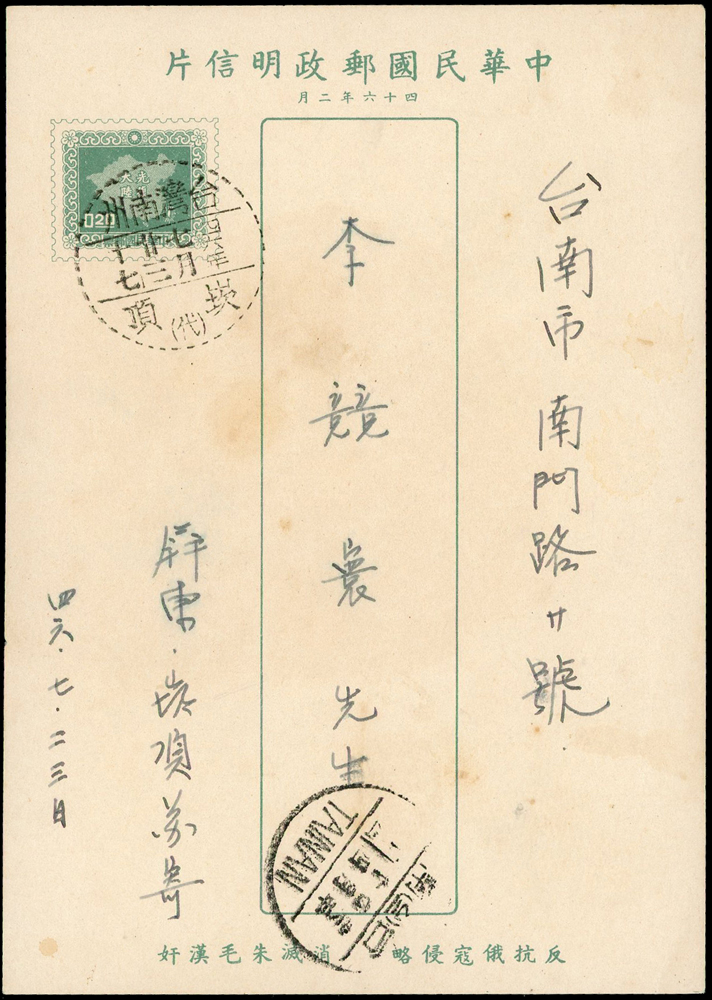 中華民國郵政明信片
四十六年二月
台南市南門路廿號
李競寰先生
屏東·崁頂蘇寄
四六·七·二三日
0.20
台灣南州
七月
廿三
十七
崁頂
(代)
TAINAN
反抗俄寇侵略
消滅朱毛漢奸